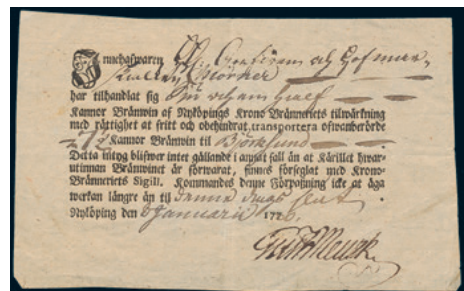 Innehafwaren
har tilhandlat sig Sju och en half
Kannor Bränwin af Nyköpings Krono Bränneriets tilwärkning
med rättighet at fritt och obehindrat transportera ofwanberörde
7½ Kannor Bränwin til Björksund
Detta intyg blifwer intet gällande i annat fall än at Kärillet hwar-
utinnan Bränwinet är förwarat, finnes förseglat med Krono-
Bränneriets Sigill. Kommandes denne Förpaßning icke at äga
werkan längre än til denne dags slut.
Nyköping den Januarii